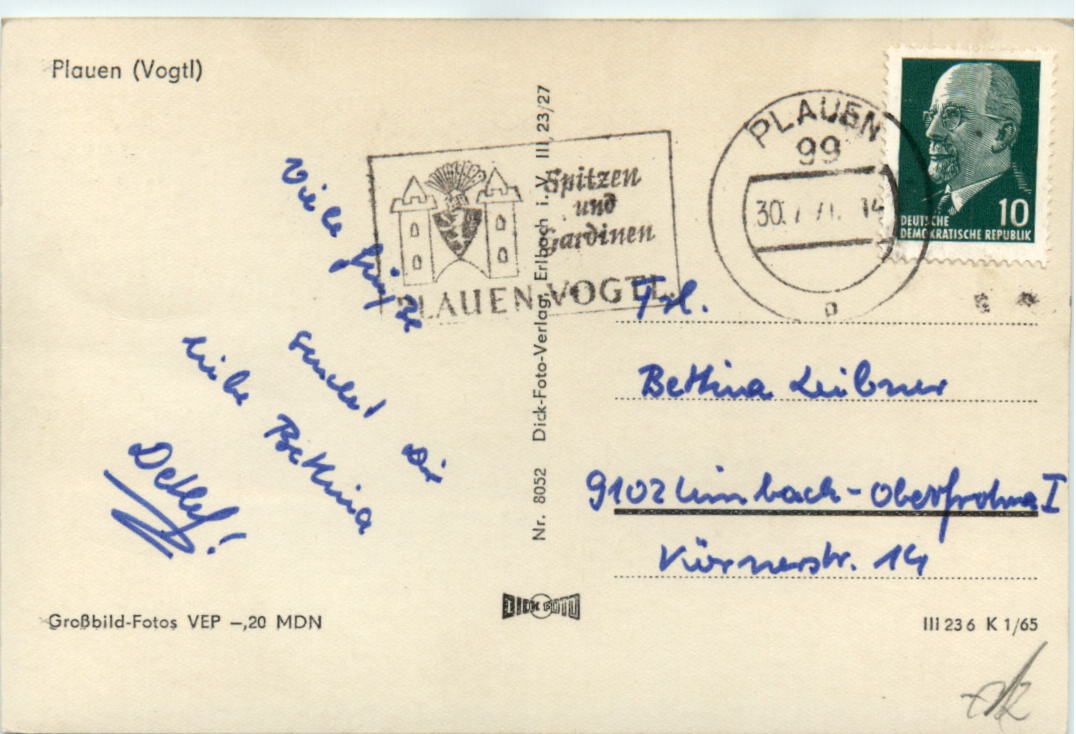 Plauen (Vogtl)
Viele Grüße
sendet Dir
liebe Bettina
Detlef!
Großbild-Fotos VEP –,20 MDN
Nr. 8052 Dick-Foto-Verlag, Erlbach i. V. III, 23/27
DICK FOTO
Spitzen
und
Gardinen
PLAUEN VOGTL.
PLAUEN
99
DEUTSCHE
DEMOKRATISCHE REPUBLIK
10
Frl.
Bettina Leibner
9102 Limbach-Oberfrohna I
Körnerstr. 14
III 23 6 K 1/65